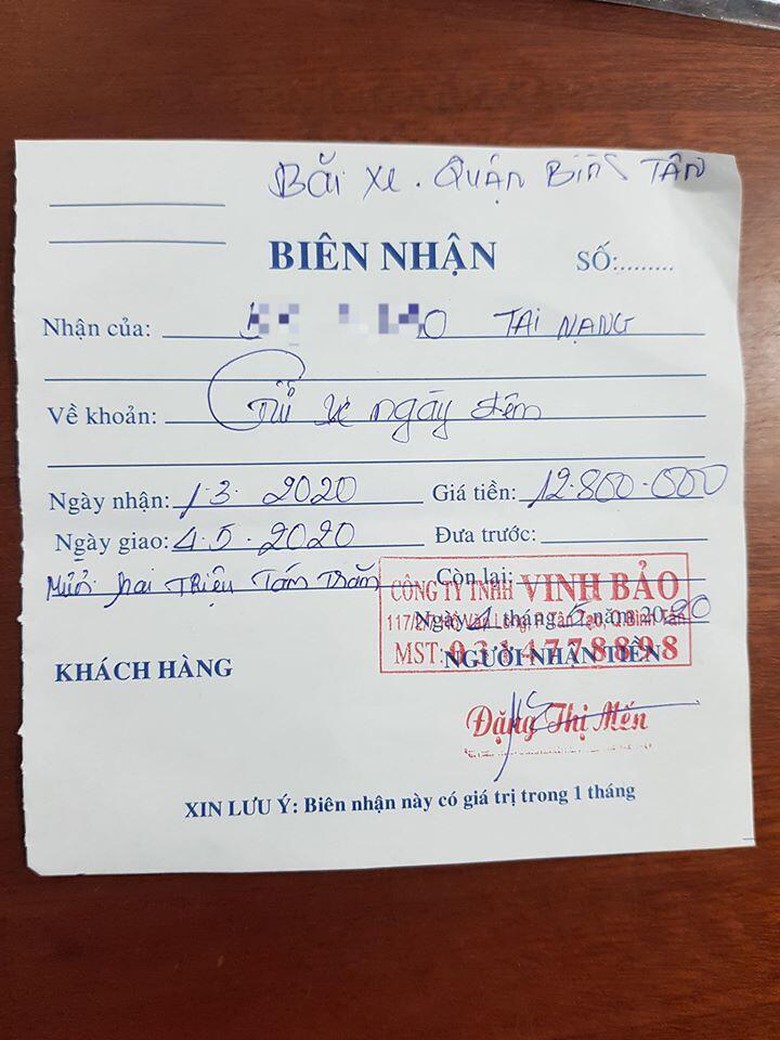 Bãi xe. QUẬN BÌNH TÂN
BIÊN NHẬN SỐ:.........
Nhận của: TAI NẠNG
Về khoản: Giữ xe ngày đêm
Ngày nhận: 1.3. 2020 Giá tiền: 12.800.000
Ngày giao: 4.5.2020 Đưa trước:
Mười hai Triệu Tám Trăm Còn lại:
CÔNG TY TNHH VINH BẢO
Ngày 4 tháng 5 năm 2020
117/2/7 Hồ Văn Long, P. Tân Tạo, Q. Bình Tân
MST: 0314778898
KHÁCH HÀNG NGƯỜI NHẬN TIỀN
Đặng Thị Mến
XIN LƯU Ý: Biên nhận này có giá trị trong 1 tháng